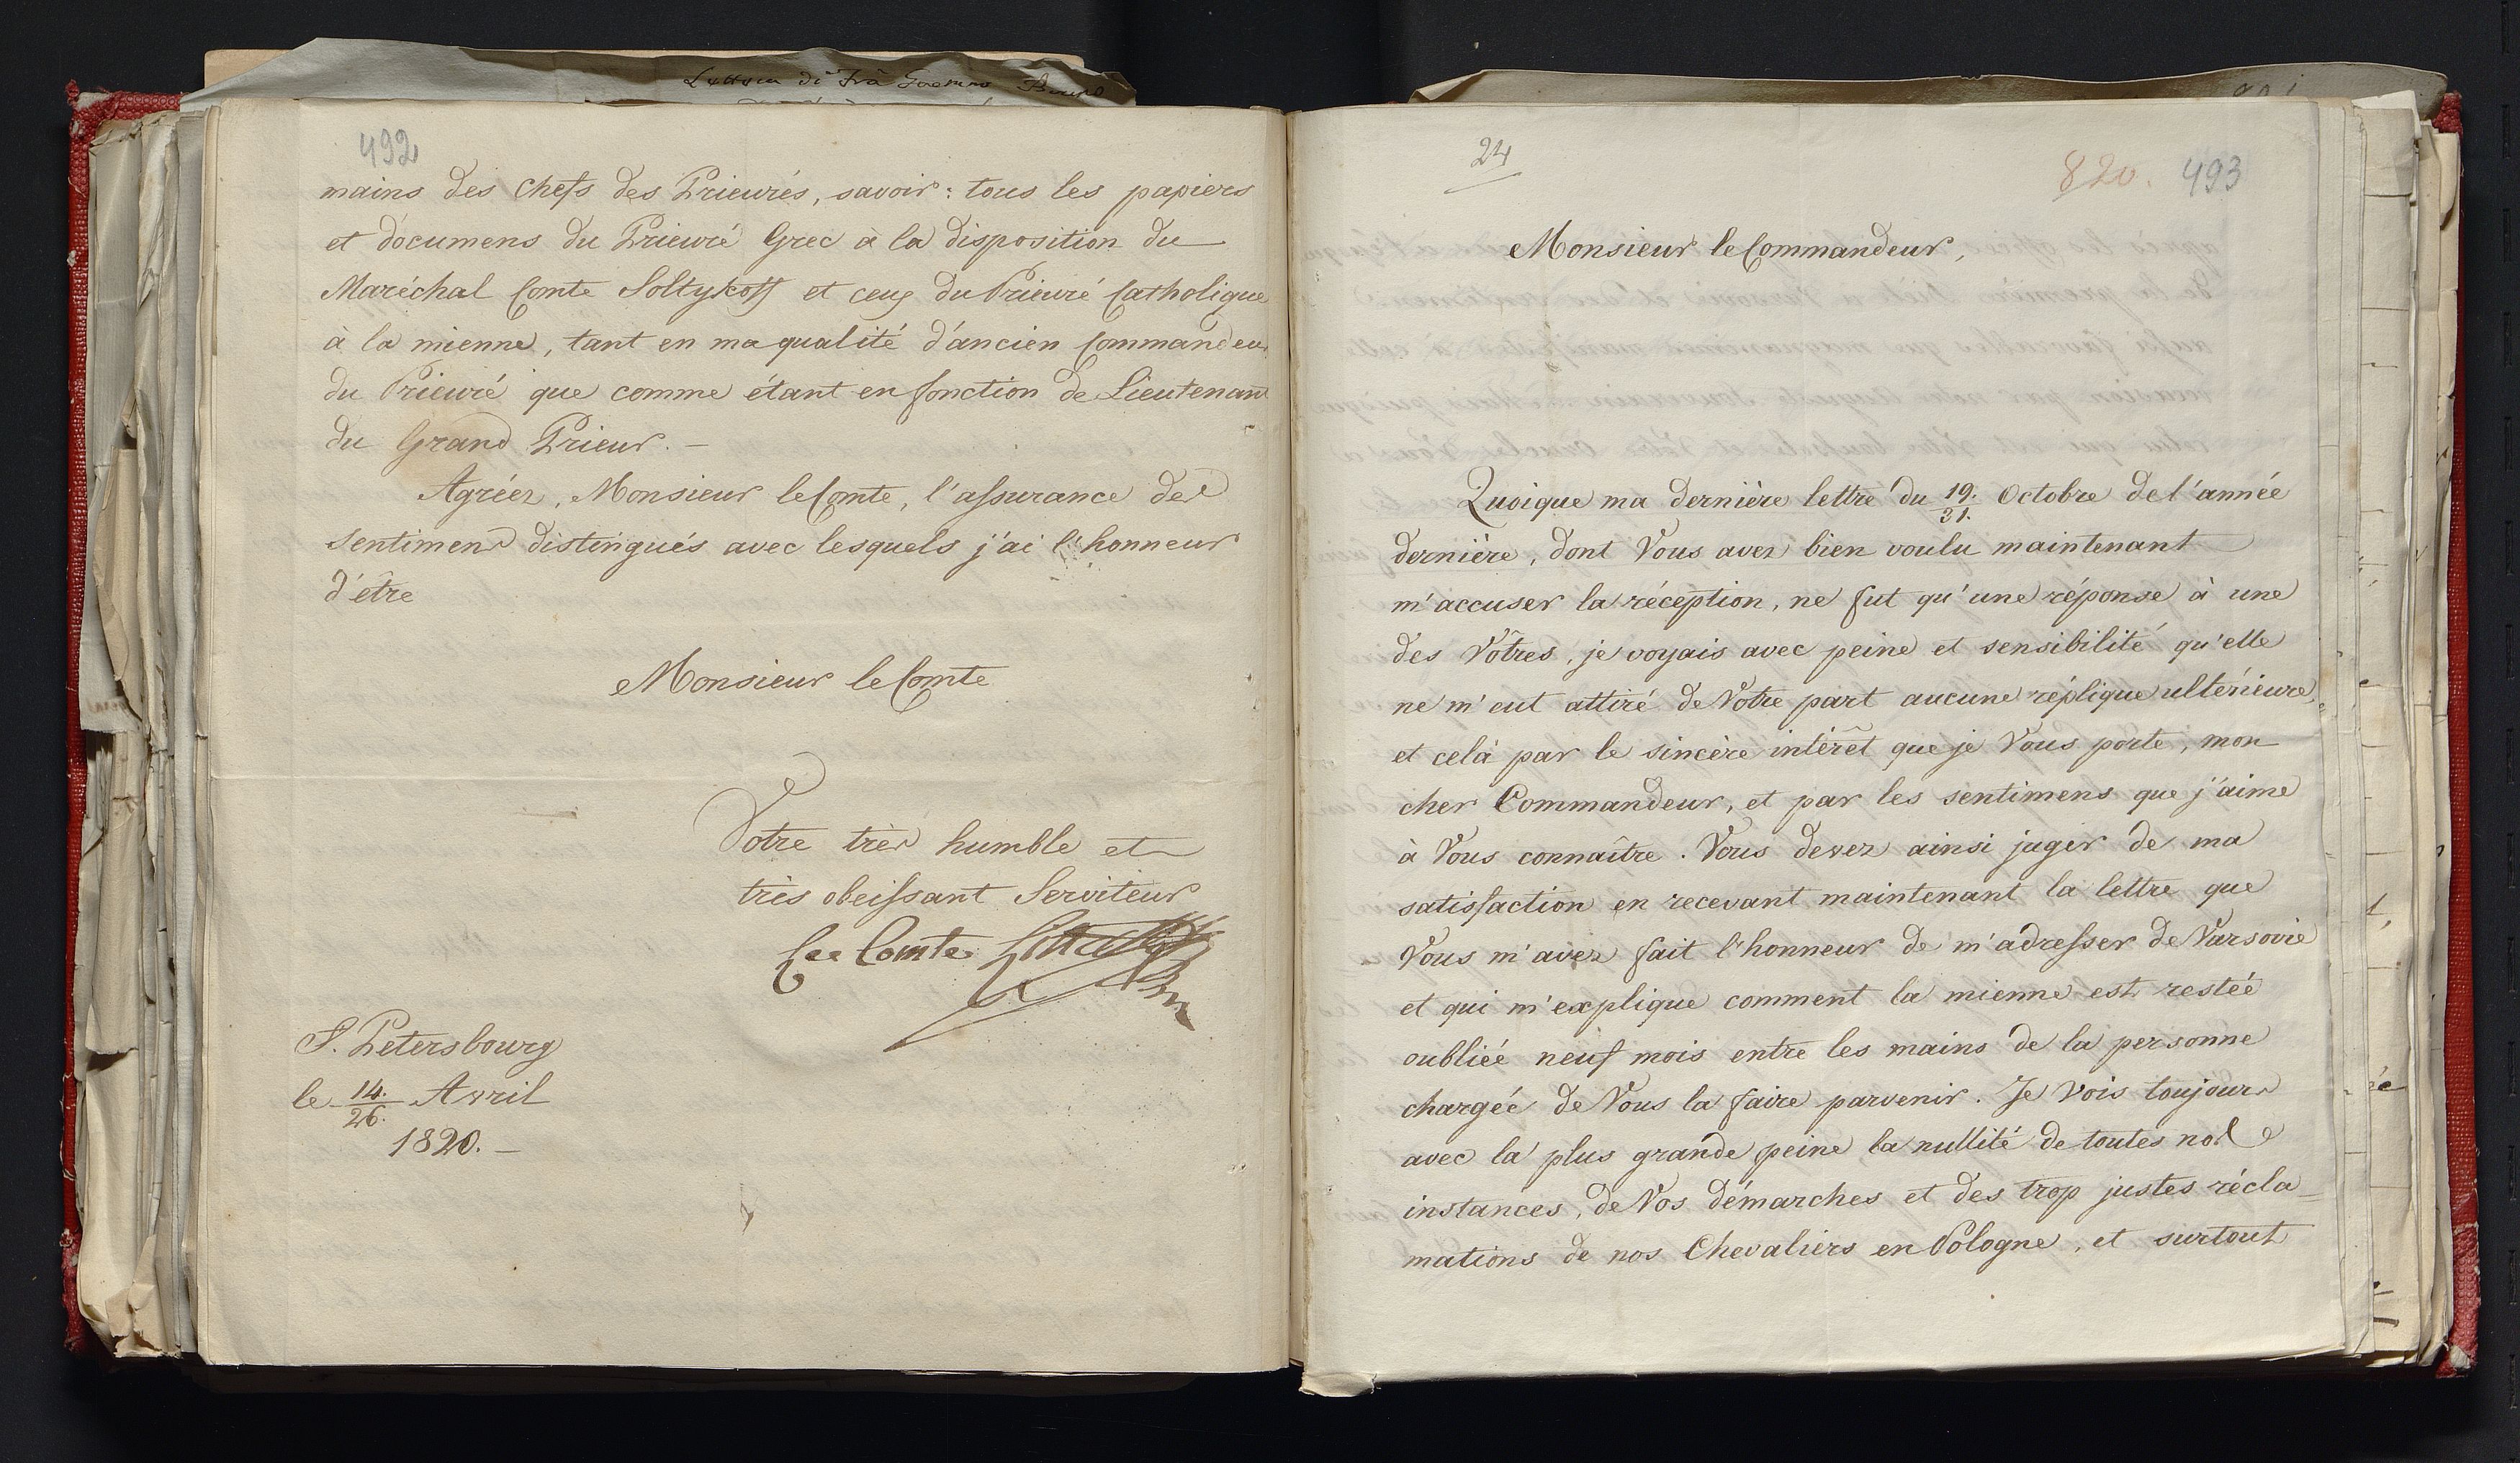 Lettera di Frà
492
mains des Chefs des Prieurés, savoir: tous les papiers
et documens du Prieuré Grec à la disposition du
Maréchal Comte Soltykoff et ceux du Prieuré Catholique
à la mienne, tant en ma qualité d'ancien Commandeur
du Prieuré que comme étant en fonction de Lieutenant
du Grand Prieur. —
Agréez, Monsieur le Comte, l'assurance des
sentimens distingués avec lesquels j'ai l'honneur
d'être
Monsieur le Comte
Votre très humble et
très obeissant Serviteur
Le Comte Litta
S. Petersbourg
le 14./26. Avril
1820. —
24
820. 493
Monsieur le Commandeur,
Quoique ma dernière lettre du 19./31. Octobre de l'année
dernière, dont Vous avez bien voulu maintenant
m'accuser la réception, ne fut qu'une réponse à une
des Vôtres, je voyais avec peine et sensibilité qu'elle
ne m'eut attiré de Votre part aucune réplique ultérieure,
et celà par le sincère intérêt que je Vous porte, mon
cher Commandeur, et par les sentimens que j'aime
à Vous connaître. Vous devez ainsi juger de ma
satisfaction en recevant maintenant la lettre que
Vous m'avez fait l'honneur de m'adresser de Varsovie
et qui m'explique comment la mienne est restée
oubliée neuf mois entre les mains de la personne
chargée de Vous la faire parvenir. Je vois toujours
avec la plus grande peine la nullité de toutes nos
instances, de Vos démarches et des trop justes récla=
mations de nos Chevaliers en Pologne, et surtout